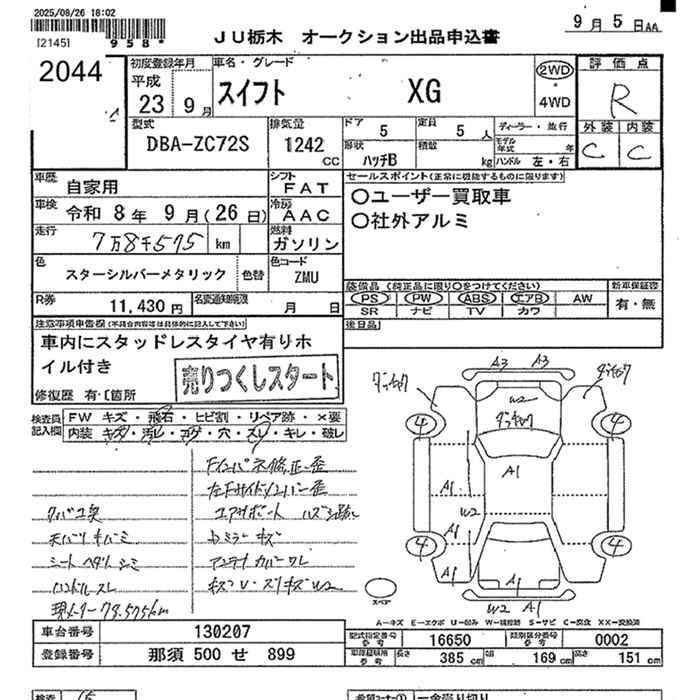 2025/08/26 18:02
[2145]
958*
JU栃木 オークション出品申込書
9月5日AA
2044
初度登録年月
平成
23 9月
車名・グレード
スイフト XG
2WD
4WD
評価点
R
外装 内装
C C
型式
DBA-ZC72S
排気量
1242
CC
ドア 5
定員 5 人
ディーラー・並行
形状
ハッチB
積数 kg
モデル年式 年
ハンドル 左・右
車歴 自家用
シフト FAT
車検 令和 8年 9月(26日)
冷房 AAC
走行 7万8千575 km
燃料
ガソリン
色 スターシルバーメタリック
色替
色コード
ZMU
R券 11,430円
名変通知期限 月 日
セールスポイント(正常に機能するものに限ります)
○ユーザー買取車
○社外アルミ
装備品(純正品に限り○をつけてください)
PS PW ABS エアB AW
SR ナビ TV カワ
新車保証書
有・無
後日品
注意事項申告欄(不具合内容等は具体的に記入して下さい)
車内にスタッドレスタイヤ有りホ
イル付き
売りつくしスタート
修復歴 有・[箇所
検査員記入欄
FW キズ・飛石・ヒビ割・リペア跡・×要
内装 キズ・汚レ・コゲ・穴・スレ・キレ・破レ
天バリキバミ
シートヘタリシミ
ハンドルスレ
現メーター 78.575km
エアサポート ハズシ跡
ドミラーキズ
アンテナカバーワレ
A3 A3
W2
A1
A1
W2
A1
A1
A1
W2 A1
4 4
4 4
スペア
A−キズ E−エクボ U−凹み W−補修跡 S−サビ C−腐食 XX−交換済
車台番号 130207
登録番号 那須 500 せ 899
型式指定番号
参考
16650
類別区分番号
参考
0002
長さ 385 cm 幅 169 cm 高さ 151 cm